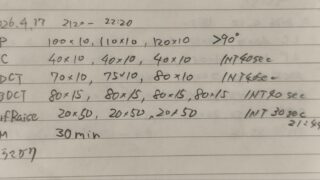 026.4.17 2120- 22:20
P 100×10, 110×10, 120×10 >90°
C 40×10, 40×10, 40×10 INT 40sec
DCT 70×10, 75×10, 80×10 INT 40sec
DCT 80×15, 80×15, 80×15, 80×15 INT 40sec
fRaise 20×50, 20×50, 20×50 INT 30sec
M 30min